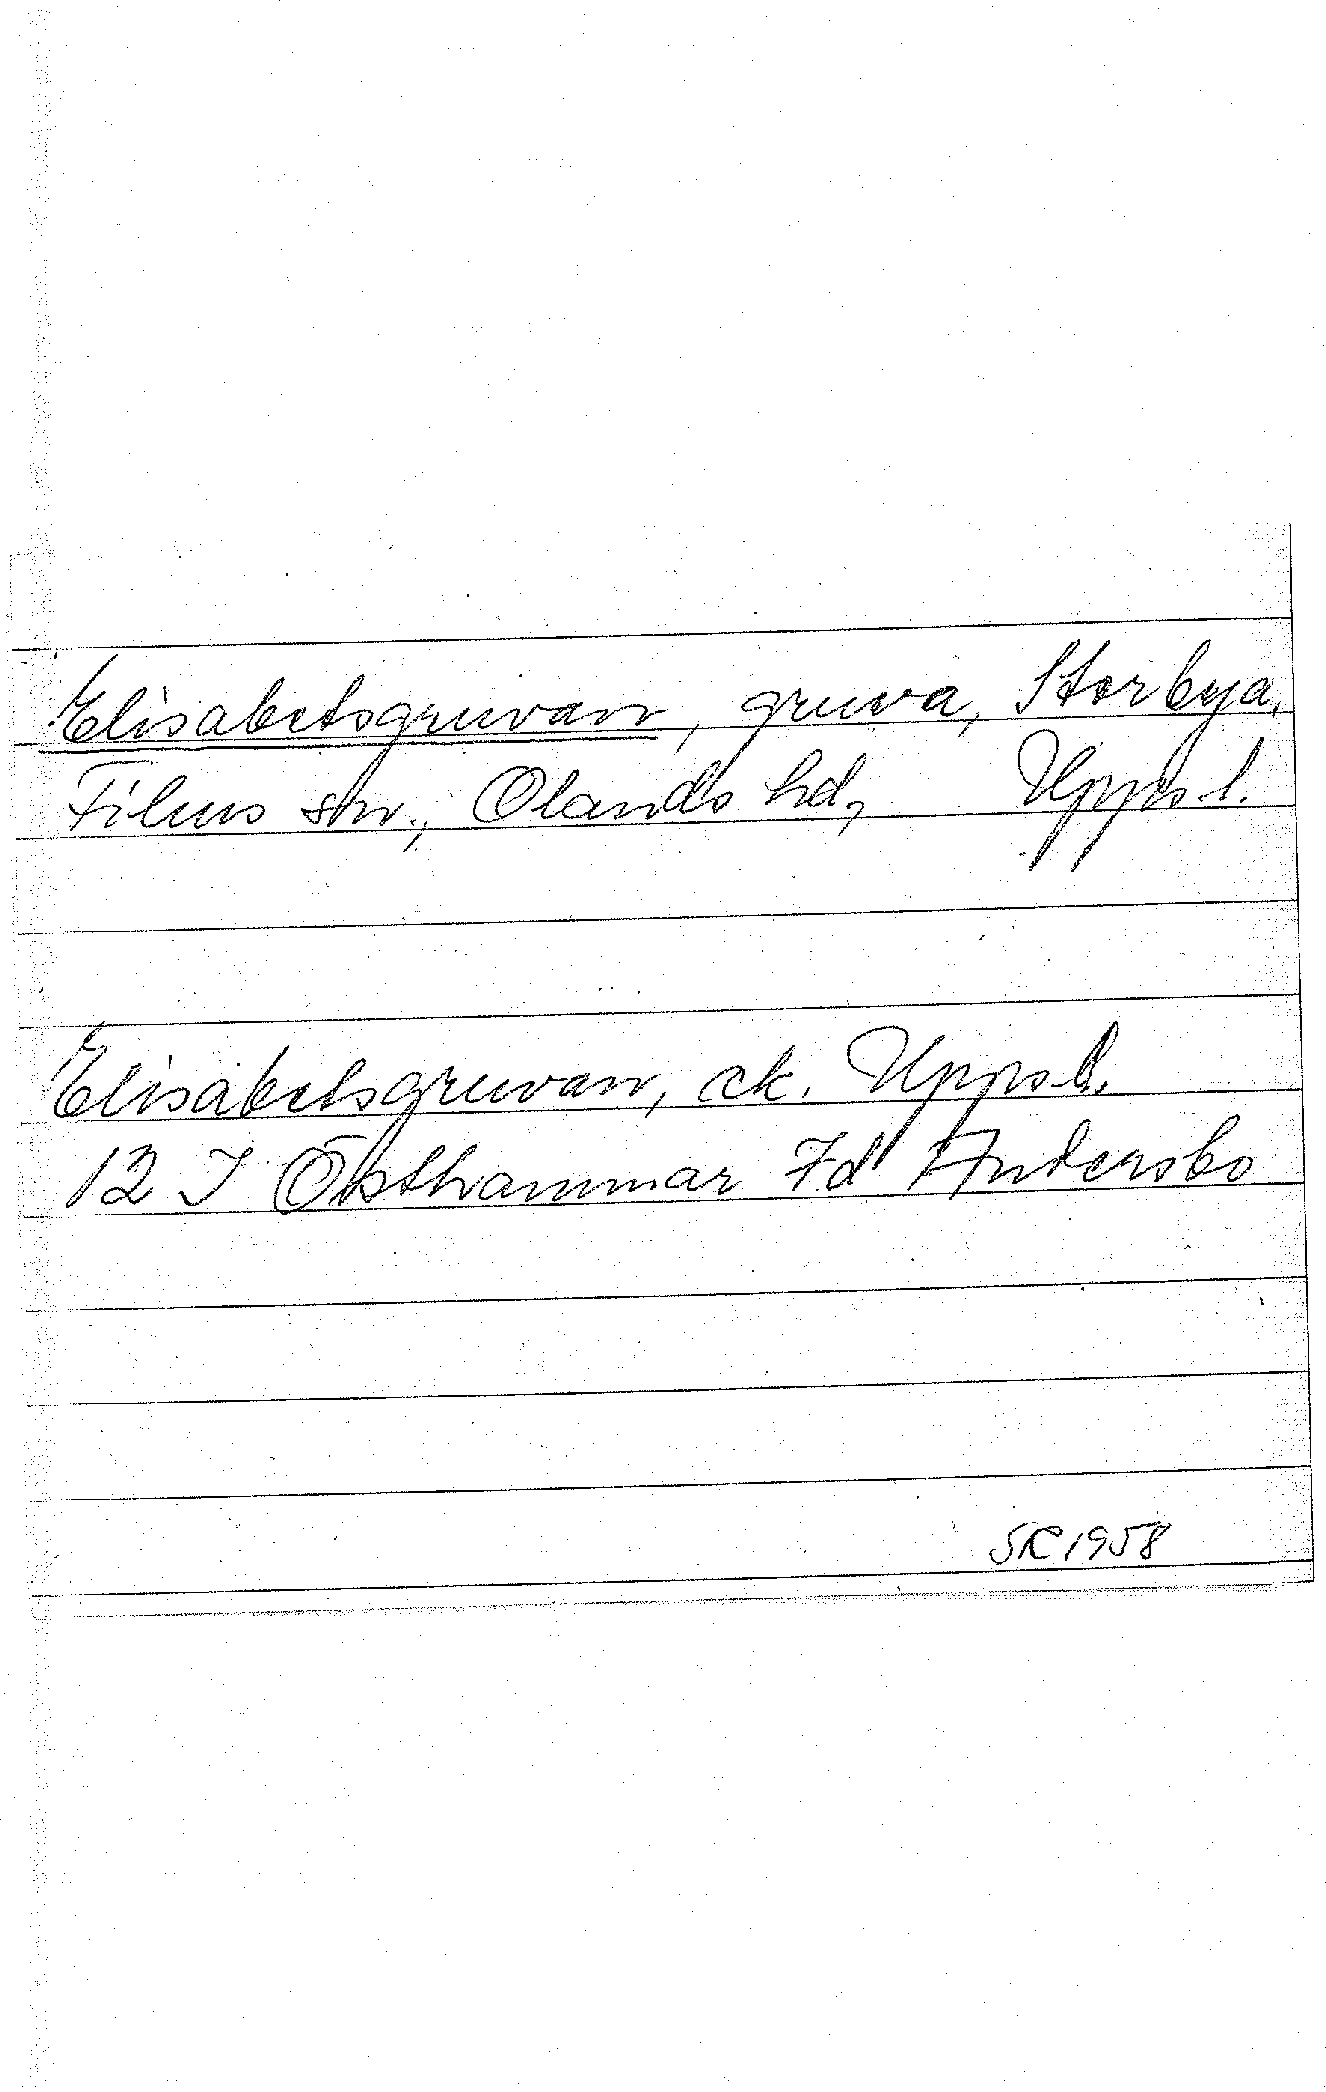 Elisabetsgruvan, gruva, Storbya,
Films sn., Olands hd, Upps. l.
Elisabetsgruvan, ek. Upps. l.
12 I Östhammar 7d Andersbo
SR 1958